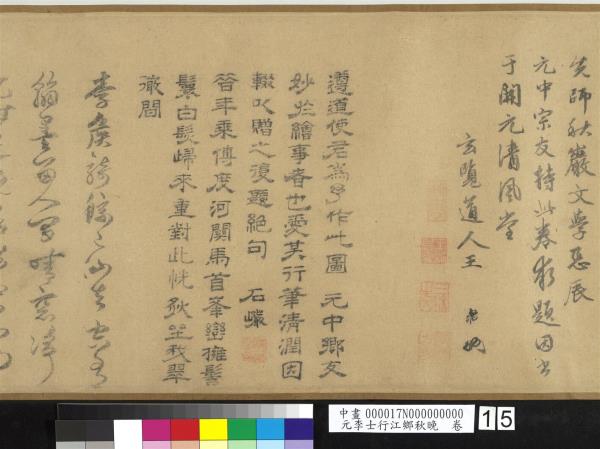 先師秋巖文學忌辰
元中宗友持此卷求題因書
于開元清風堂
玄覽道人王
遵道使君為予作此圖 元中鄉友
妙於繪事者也愛其行筆清潤因
輟以贈之復題絕句 石巖
昔年乘傳度河關馬首峯巒擁髻
鬟白髮歸來重對此恍猶坐我翠
微間
李侯騎鯨上仙去
翰墨留人間晴窗淨
中畫 000017N000000000
元李士行江鄉秋晚 卷
15